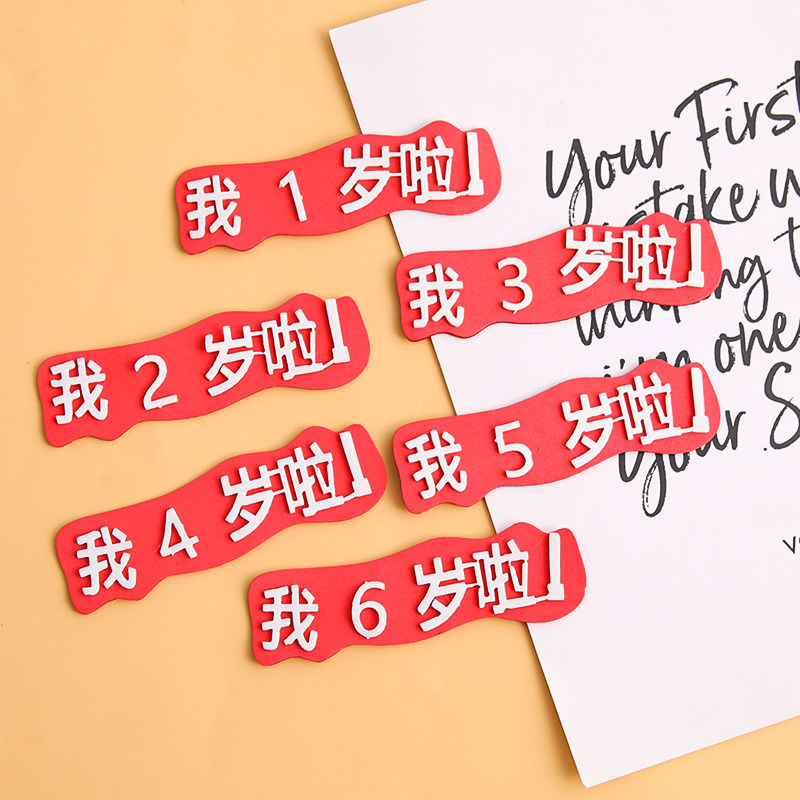 我1岁啦！
我3岁啦！
我2岁啦！
我5岁啦！
我4岁啦！
我6岁啦！
Your First
take w
ing t
one
Your S